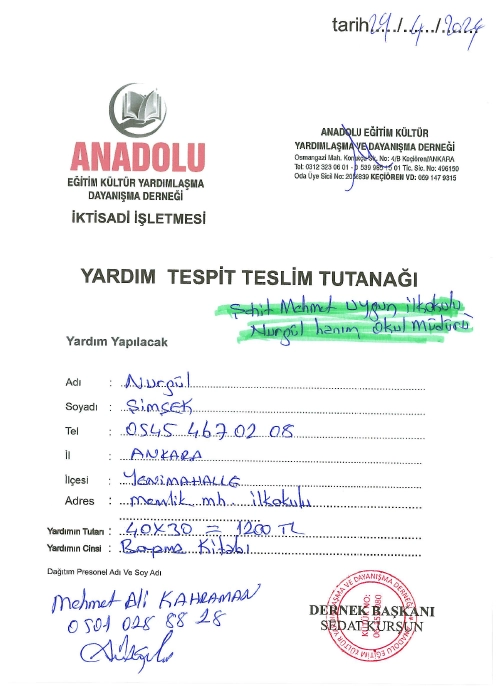 tarih 29 / 4 / 2024
ANADOLU
EĞİTİM KÜLTÜR YARDIMLAŞMA
DAYANIŞMA DERNEĞİ
İKTİSADİ İŞLETMESİ
ANADOLU EĞİTİM KÜLTÜR
YARDIMLAŞMA VE DAYANIŞMA DERNEĞİ
Osmangazi Mah. Sk. No: 4/B Keçiören/ANKARA
Tel: 0312 323 06 01 - 0 539 985 15 01 Tic. Sic. No: 496150
Oda Üye Sicil No: KEÇİÖREN VD: 069 147 9315
YARDIM TESPİT TESLİM TUTANAĞI
Şehit Mehmet uygun ilkokulu
Nurgül hanım okul Müdürü
Yardım Yapılacak
Adı : Nurgül
Soyadı : ŞİMŞEK
Tel : 0545 467 02 08
İl : ANKARA
İlçesi : YENİMAHALLE
Adres : memlik mh. ilkokulu
Yardımın Tutarı : 40x30 = 1200 TL
Yardımın Cinsi : Boyama Kitabı
Dağıtım Presonel Adı Ve Soy Adı
Mehmet Ali KAHRAMAN
0501 028 88 28
DERNEK BAŞKANI
SEDAT KURŞUN